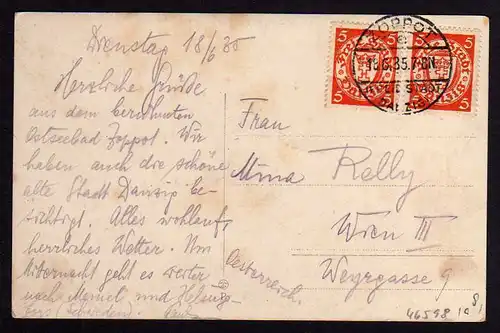 Dienstag 18/6 35
Herzliche Grüße
aus dem berühmten
Ostseebad Zoppot. Wir
haben auch die schöne
alte Stadt Danzig be-
sichtigt. Alles wohlauf,
herrliches Wetter. Um
Mitternacht geht es weiter
nach Memel und Helsing-
fors (Schweden).
ZOPPOT
18.6.35.7-8N
5 5 5 5
5 5 5 5
Frau
Mina Relly
Wien III
Weyrgasse 9
Oesterreich.
46598